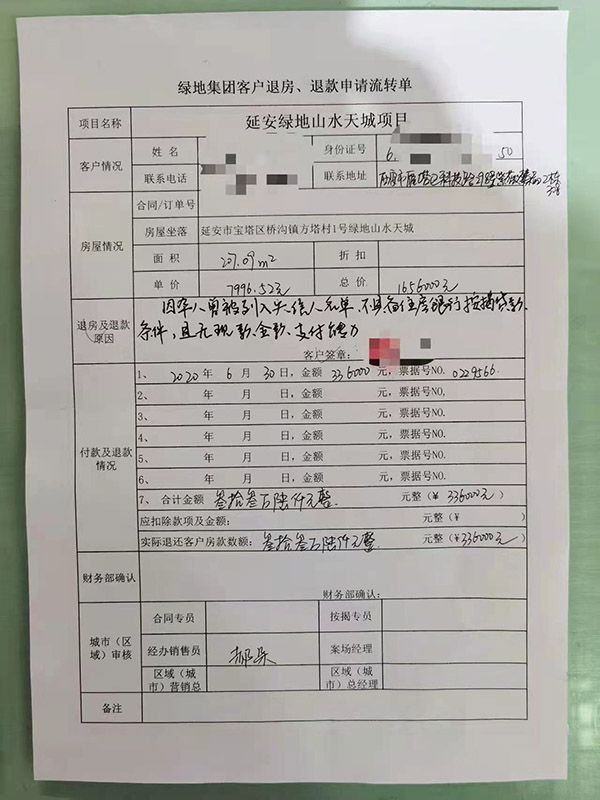 绿地集团客户退房、退款申请流转单
项目名称 延安绿地山水天城项目
客户情况 姓名 身份证号 6. 50
联系电话 联系地址
房屋情况 合同/订单号
房屋坐落 延安市宝塔区桥沟镇方塔村1号绿地山水天城
面积 207.09m² 折扣
单价 7996.52元 总价 1656000元
退房及退款原因 因本人男被列入失信人名单,不具备住房银行按揭贷款
条件,且无现款全款支付能力
客户签章:
付款及退款情况 1、 2020年 6月 30日,金额 336000元,票据号NO. 0229566.
2、 年 月 日,金额 元,票据号NO,
3、 年 月 日,金额 元,票据号NO.
4、 年 月 日,金额 元,票据号NO.
5、 年 月 日,金额 元,票据号NO.
6、 年 月 日,金额 元,票据号NO.
7、合计金额 叁拾叁万陆仟元整. 元整(¥ 336000元)
应扣除款项及金额: 元整(¥ )
实际退还客户房款数额: 叁拾叁万陆仟元整. 元整(¥336000元)
财务部确认
财务部确认:
城市(区域)审核 合同专员 按揭专员
经办销售员 案场经理
区域(城市)营销总 区域(城市)总经理
备注